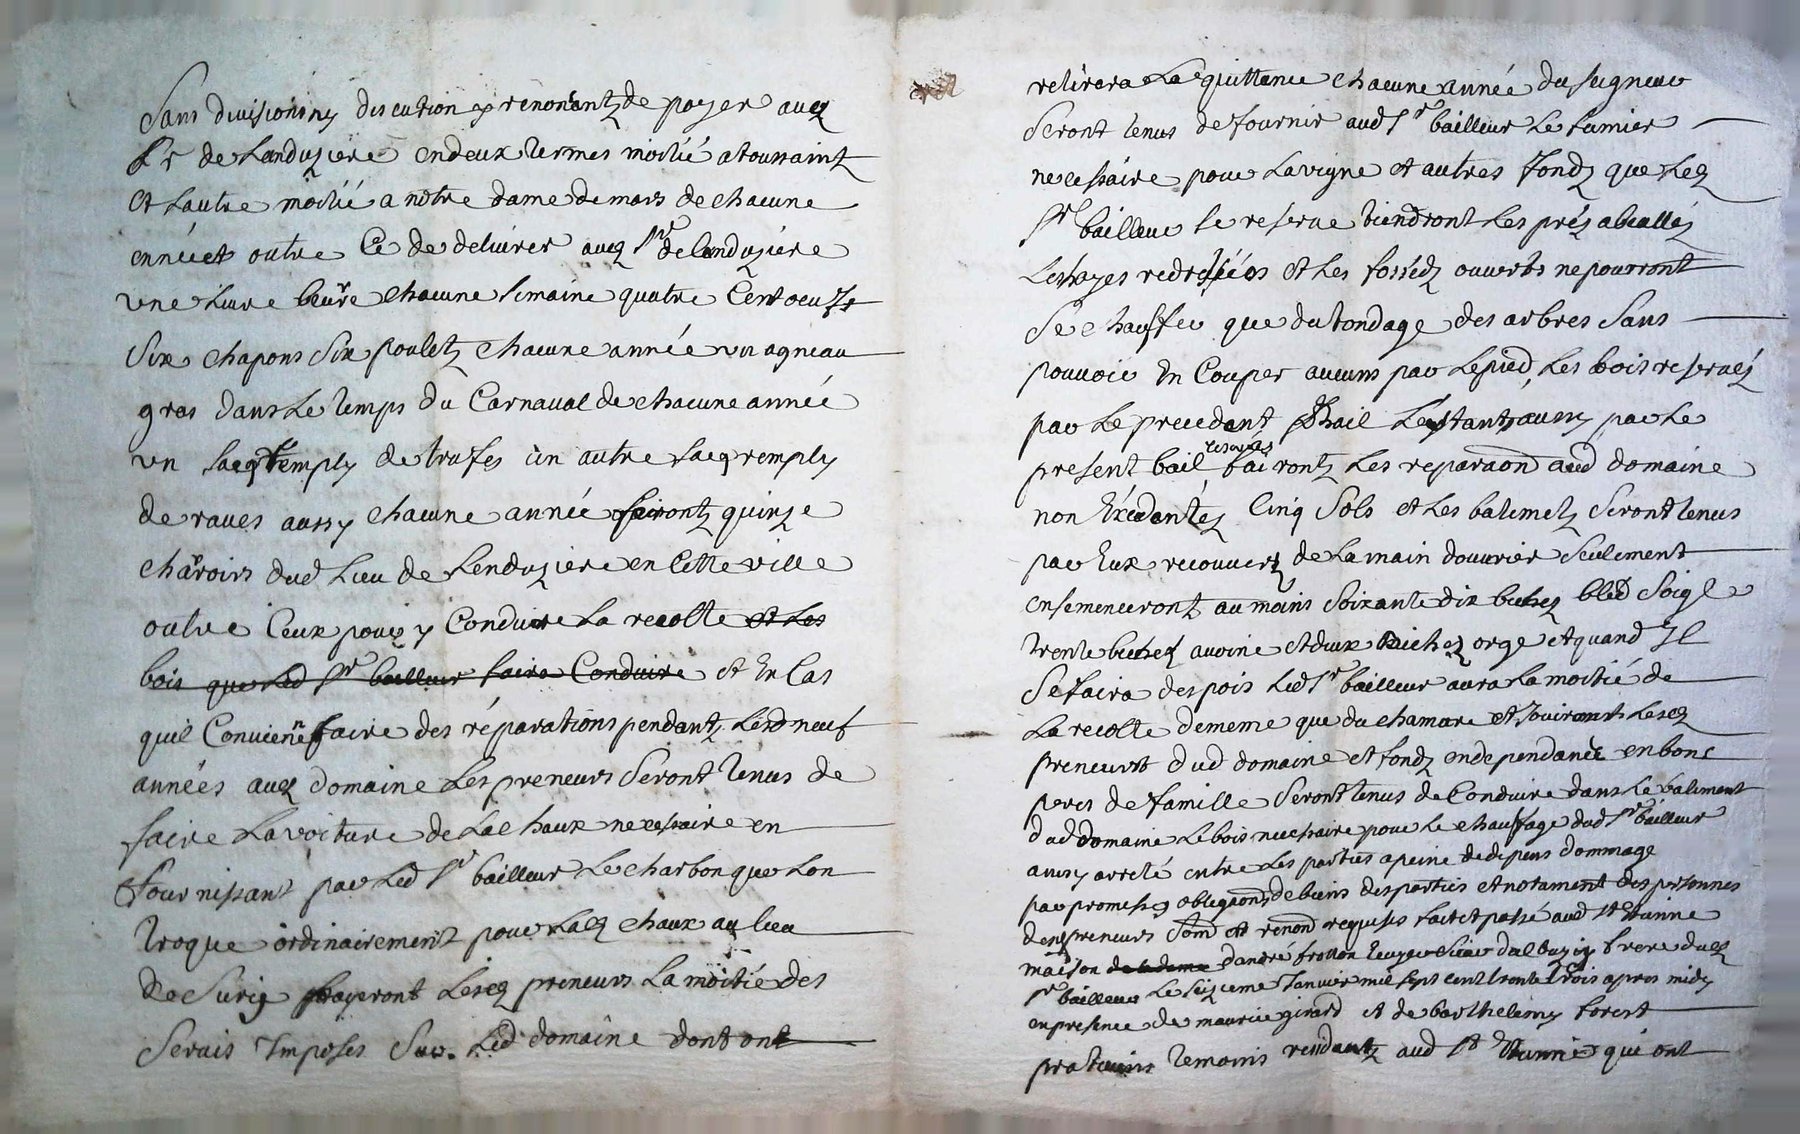 Sans divisions ny discution y renonéantz de payer audz
Sr de Landuziere en deux termes moitié a toussaintz
Et Lautre moitié a nôtre dame de mars de chacune
année et outre Ce de delivrer audz Sr de landuziere
une livre beure chacune semaine quatre Cent oeufz
Six chapons Six pouletz chacune année un agneau
gras dans Le temps du Carnaval de chacune année
un sacq remply de trufes un autre sacq remply
de raves aussy chacune année fairontz quinze
charois dud Lieu de Lenduziere en Cette ville
outre Ceux pour y Conduire La recolte et Les
bois que Led Sr bailleur faira Conduire et En Cas
quil Convienne faire des réparations pendantz Lesd neuf
années audz domaine Les preneurs Seront tenus de
faire La voiture de La chaux necessaire en
fournissant par Led Sr bailleur Le charbon que Lon
troque ordinairement pour Lad chaux au lieu
de Surig payeront Lesdz preneurs La moitié des
Servis Imposés Sur Led domaine dont ont
retirera La quittance chacune année du seigneur
Seront tenus de fournir aud Sr bailleur Le fumier
necessaire pour La vigne et autres fondz que Ledz
Sr bailleur se reserve tiendront Les préz
Les hayes redressées et Les fossédz ouverts ne pourront
Se chauffer que du tondage des arbres Sans
pouvoir En Couper aucuns par Le pied, Les bois reservéz
par Le precedant bail L'estantz aussy par Le
present bail reservés fairontz Les reparaon aud domaine
non Excedantéz Cinq Sols et Les batimetz Seront tenus
par Eux recouvertz de La main douvrier Seulement
ensemenceront au moins Soixante dix bichez bled Soigle
trente bichez avoine et deux Bichez orge et quand Il
Se faira des pois Led Sr bailleur aura La moitié de
La recolte de meme que du chamare et Jouiront Lesdz
preneurs dud domaine et fondz en dependance en bons
peres de famille Seront tenus de Conduire dans Le batiment
dud domaine Le bois necessaire pour Le chauffage dud Sr bailleur
ainsy arreté entre Les parties a peine de depens dommage
par promesses obligaons de biens des parties et notament des personnes
desd preneurs Som et renond requises fait et passé aud St Etienne
maison de la dame dandré frotton Ecuyer Sieur dalbuzy frere dudz
Sr bailleur Le Seizieme Janvier mil sept cent trente trois apres midy
en presence de maurice girard et de barthelemy forest
praticiens temoins residantz aud St Etienne qui ont